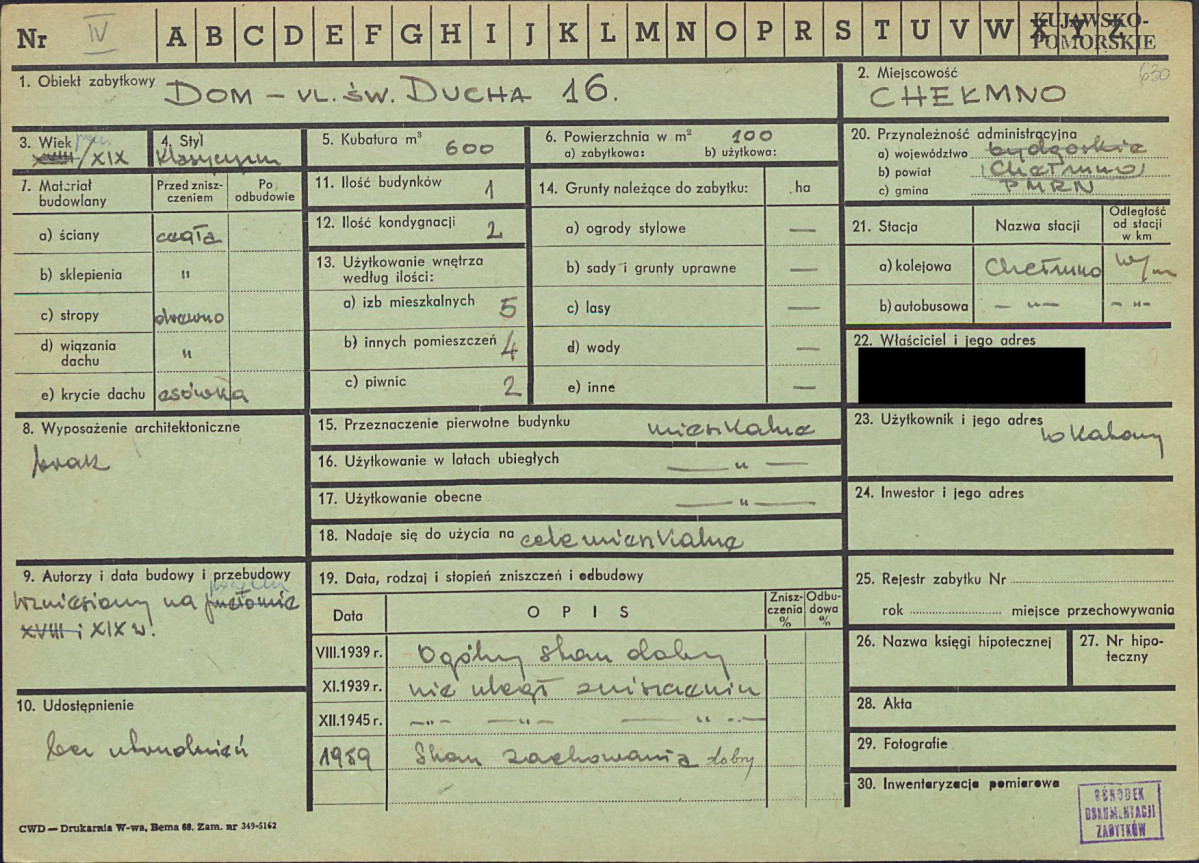 Nr IV A B C D E F G H I J K L M N O P R S T U V W X Y Z
KUJAWSKO-
POMORSKIE
1. Obiekt zabytkowy DOM – UL. ŚW. DUCHA 16.
2. Miejscowość 630
CHEŁMNO
3. Wiek
XVIII/XIX
4. Styl
Klasycyzm
5. Kubatura m³ 600
6. Powierzchnia w m² 100
a) zabytkowa: b) użytkowa:
20. Przynależność administracyjna
a) województwo bydgoskie
b) powiat (Chełmno)
c) gmina PMRN
7. Materiał budowlany
Przed znisz-
czeniem
Po
odbudowie
a) ściany cegła
b) sklepienia "
c) stropy drewno
d) wiązania
dachu "
e) krycie dachu esówka
11. Ilość budynków 1
12. Ilość kondygnacji 2
13. Użytkowanie wnętrza
według ilości:
a) izb mieszkalnych 5
b) innych pomieszczeń 4
c) piwnic 2
14. Grunty należące do zabytku: ha
a) ogrody stylowe —
b) sady i grunty uprawne —
c) lasy —
d) wody —
e) inne —
21. Stacja Nazwa stacji
Odległość
od stacji
w km
a) kolejowa Chełmno w/m
b) autobusowa — " — — " —
22. Właściciel i jego adres
8. Wyposażenie architektoniczne
brak
15. Przeznaczenie pierwotne budynku mieszkalne
16. Użytkowanie w latach ubiegłych — " —
17. Użytkowanie obecne — " —
18. Nadaje się do użycia na cele mieszkalne
23. Użytkownik i jego adres
lokatorzy
24. Inwestor i jego adres
9. Autorzy i data budowy i przebudowy
Wzniesiony na przełomie
XVIII i XIX w.
19. Data, rodzaj i stopień zniszczeń i odbudowy
Data OPIS
Znisz-
czenia
%
Odbu-
dowa
%
VIII.1939 r. Ogólny stan dobry
XI.1939 r. nie uległ zniszczeniu
XII.1945 r. — " — — " — — " —
1959 Stan zachowania dobry
25. Rejestr zabytku Nr
rok miejsce przechowywania
26. Nazwa księgi hipotecznej
27. Nr hipo-
teczny
10. Udostępnienie
bez utrudnień
28. Akta
29. Fotografie
30. Inwentaryzacja pomiarowa
OŚRODEK
DOKUMENTACJI
ZABYTKÓW
CWD — Drukarnia W-wa, Bema 60. Zam. nr 349-5162